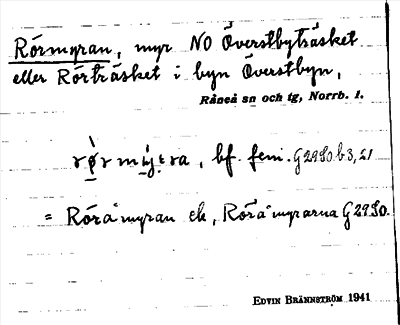 Rörmyran, myr NO Överstbyträsket
eller Rörträsket i byn Överstbyn,
Råneå sn och tg, Norrb. l.
bf. fem. G2980 b3, 21
= Röråmyran ek, Röråmyrarna G2980.
EDVIN BRÄNNSTRÖM 1941